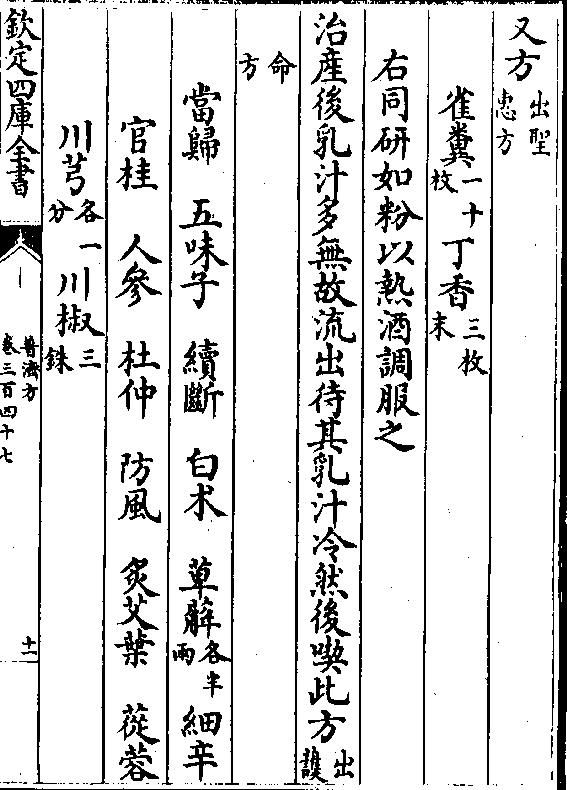 又方出聖惠方
雀糞一十枚 丁香三枚末
右同研如粉以熱酒調服之
治產後乳汁多無故流出待其乳汁冷然後喫此方出護
命方
當歸 五味子 續斷 白朮 萆薢各半兩 細辛
官桂 人參 杜仲 防風 炙艾葉 蓯蓉
川芎各一分 川椒三銖
欽定四庫全書
普濟方
卷三百四十七
十一